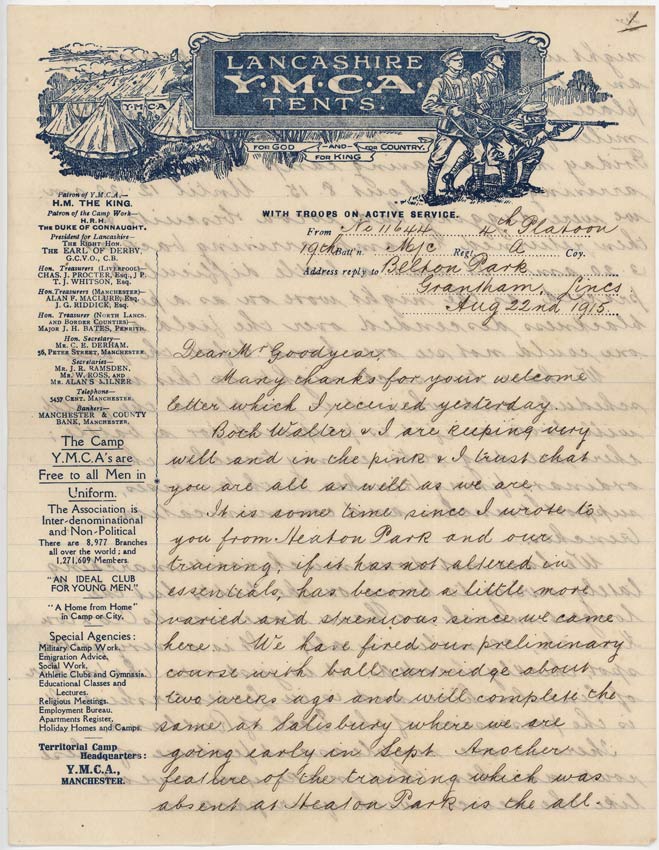 1
LANCASHIRE
Y.M.C.A.
TENTS.
Y.M.C.A
FOR GOD —AND— FOR COUNTRY.
FOR KING
WITH TROOPS ON ACTIVE SERVICE.
From No 11644 4th Platoon
19th Batt'n. M/c Regt. A Coy.
Address reply to Belton Park
Grantham, Lincs.
Aug 22nd 1915.
Patron of Y.M.C.A.—
H.M. THE KING.
Patron of the Camp Work—
H.R.H.
THE DUKE OF CONNAUGHT.
President for Lancashire—
THE RIGHT HON.
THE EARL OF DERBY,
G.C.V.O., C.B.
Hon. Treasurers (LIVERPOOL)—
CHAS. J. PROCTER, Esq., J P.
T. J. WHITSON, Esq.
Hon. Treasurers (MANCHESTER)—
ALAN F. MACLURE, Esq.
J. G. RIDDICK, Esq.
Hon. Treasurer (NORTH LANCS.
AND BORDER COUNTIES)—
MAJOR J. H. BATES, PENRITH.
Hon. Secretary—
MR. C. E. DERHAM.
56, PETER STREET, MANCHESTER
Secretaries—
MR. J. R. RAMSDEN,
MR. W. ROSS, AND
MR. ALAN S MILNER
Telephone—
5457 CENT. MANCHESTER.
Bankers—
MANCHESTER & COUNTY
BANK, MANCHESTER.
The Camp
Y.M.C.A's are
Free to all Men in
Uniform.
The Association is
Inter-denominational
and Non-Political
There are 8,977 Branches
all over the world; and
1,271,609 Members.
"AN IDEAL CLUB
FOR YOUNG MEN."
"A Home from Home"
in Camp or City.
Special Agencies:
Military Camp Work.
Emigration Advice.
Social Work.
Athletic Clubs and Gymnasia.
Educational Classes and
Lectures.
Religious Meetings.
Employment Bureau.
Apartments Register.
Holiday Homes and Camps.
Territorial Camp
Headquarters:
Y.M.C.A.,
MANCHESTER.
Dear Mr Goodyear,
Many thanks for your welcome
letter which I received yesterday.
Both Walter & I are keeping very
well and in the pink & I trust that
you are all as well as we are.
It is some time since I wrote to
you from Heaton Park and our
training, if it has not altered in
essentials, has become a little more
varied and strenuous since we came
here. We have fired our preliminary
course with ball cartridge about
two weeks ago and will complete the
same at Salisbury where we are
going early in Sept. Another
feature of the training which was
absent at Heaton Park is the all-